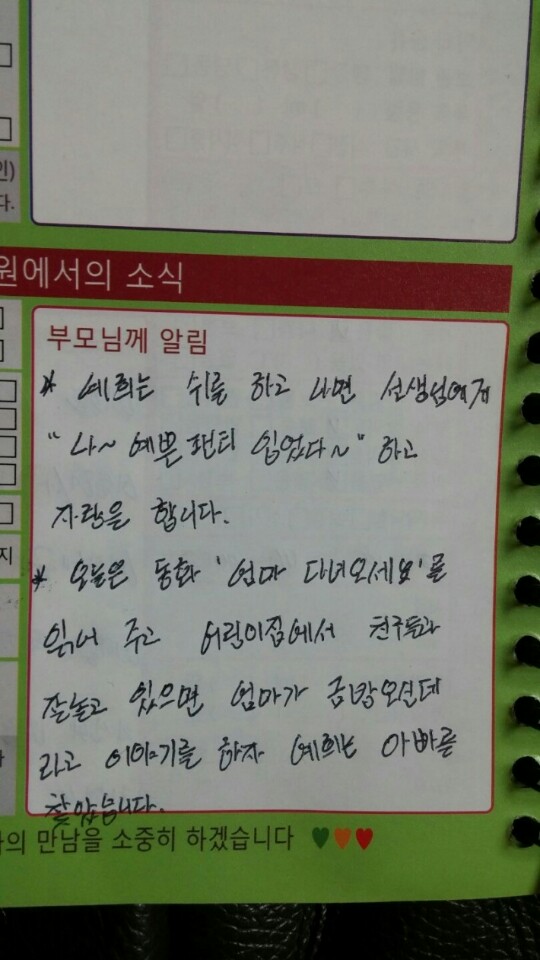 인)
다.
원에서의 소식
부모님께 알림
* 예희는 쉬를 하고 나면 선생님에게
"나~ 예쁜 팬티 입었다~" 하고
자랑을 합니다.
* 오늘은 동화 '엄마 다녀오세요'를
읽어 주고 어린이집에서 친구들과
잘놀고 있으면 엄마가 금방오실데
라고 이야기를 하자 예희는 아빠를
찾았습니다.
지
의 만남을 소중히 하겠습니다